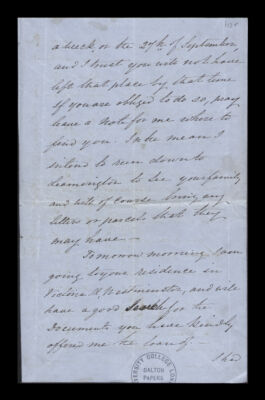 a week, or the 27th of September,
and I trust you will not have
left that place by that time
If you are obliged to do so, pray
leave a Note for me where to
find you. In the mean I
intend to run down to
Leamington to see your family
and will of course bring any
letters or parcels that they
may have —
Tomorrow morning I am
going to your residence in
Victoria St, Westminster, and will
have a good Search for the
Documents you have kindly
offered me the loan of —
I had
UNIVERSITY COLLEGE LONDON
GALTON
PAPERS